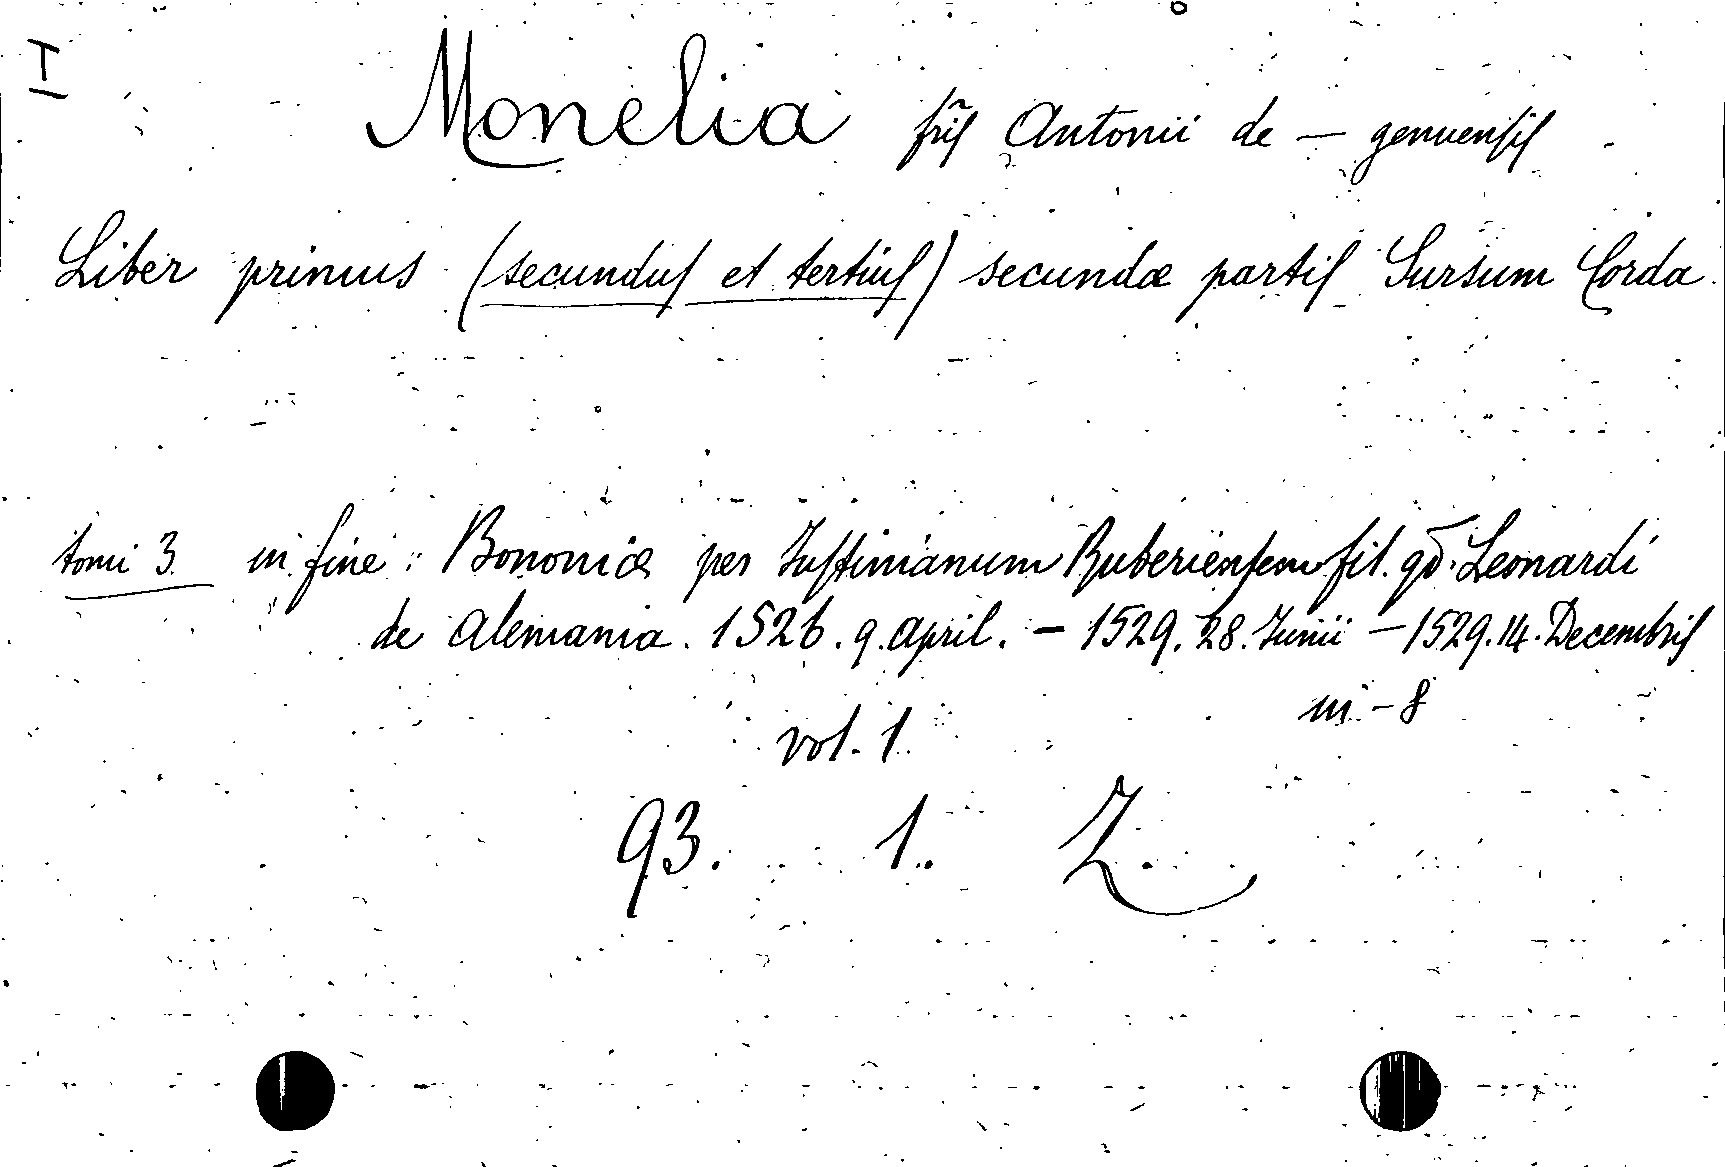 I
Monelia fr̃is Antonii de — genuensis
Liber primus (secundus et tertius) secundæ partis Sursum Corda
tomi 3 in fine: Bononiæ per Justinianum Ruberiensem fil. qd. Leonardi
de Alemania. 1526. 9. April. — 1529. 28. Junii — 1529. 14. Decembris
in-8
vol. 1.
93. 1. Z.